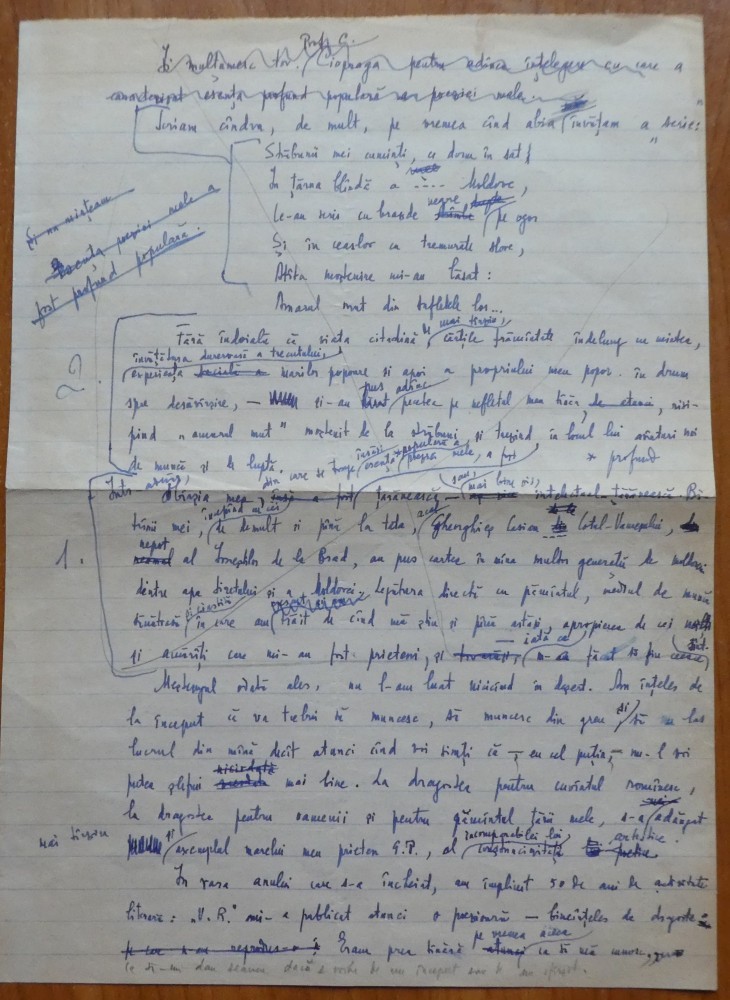 Prof. C.
Îi mulțumesc tov. Ciopraga pentru adînca înțelegere cu care a
caracterizat esența profund populară a poeziei mele.
Scriam cîndva, de mult, pe vremea cînd abia învățam a „scrie":
Străbunii mei cuminți, ce dorm în sat
În țărna blîndă a Moldove,
Le-au scris cu brazde negre pe ogor
Și în ceaslov cu tremurate slove,
Atîta moștenire mi-au lăsat:
Amarul mut din sufletele lor...
Și nu mințeam
Esența poeziei mele a
fost profund populară.
2.
Fără îndoială că viața citadină de mai tîrziu, cărțile frămîntate îndelung cu mintea,
învățătura dureroasă a trecutului,
experiența marilor popoare și apoi a propriului meu popor în drum
spre desăvîrșire, — și-au pus adînc pecetea pe sufletul meu risi-
pind „amarul mut" moștenit de la străbuni și trezind, în locul lui avînturi noi
de muncă și de luptă.
din care se trage însăși esența populară a poeziei mele, a fost
* profund
1.
Într- obîrșia mea țărănească — sau, mai bine zis, intelectual-țărănească. Bă-
trînii mei, începînd cu cei de demult și pînă la tata, Gheorghieș Lesian Cotul-Vameșului,
nepot al de la Brad, au pus cartea în mîna multor generații de moldoveni
dintre apa Siretului și a Moldovei. Legătura directă cu pămîntul, mediul de muncă
și cinstită în care am trăit de cînd mă știu și pînă astăzi, apropierea de cei
și amărîți care mi-au fost prieteni, și — iată ce m-a făcut să fiu
Meșteșugul odată ales, nu l-am luat niciodată în deșert. Am înțeles de
la început că va trebui să muncesc, să muncesc din greu și să nu las
lucrul din mînă decît atunci cînd voi simți că — eu cel puțin, — nu-l voi
putea șlefui niciodată mai bine. La dragostea pentru cuvîntul romînesc,
la dragostea pentru oamenii și pentru pămîntul țării mele, s-a adăugat
mai tîrziu și exemplul marelui meu prieten G.T., al incomparabilei lui conștiinciozități artistice.
În vara anului care s-a încheiat, am împlinit 50 de ani de activitate
literară: „V.R." mi-a publicat atunci o poezioară — bineînțeles de dragoste
pe care n-am reprodus-o. Eram prea tînără pe vremea aceea atunci ca să mă
ce să-mi dau seama dacă e vorba de un început sau de un sfîrșit.